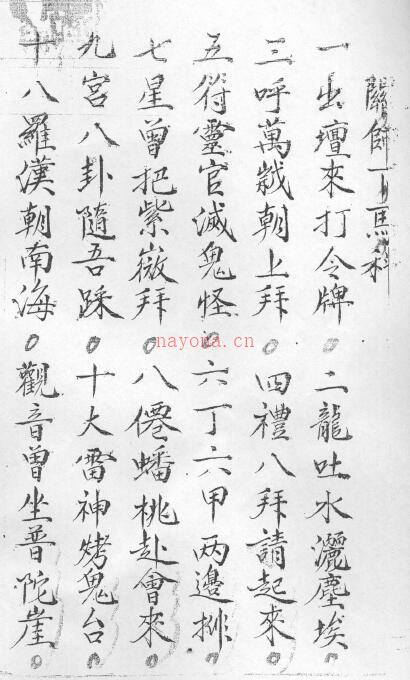 師馬
一出壇來打令牌。二龍吐水灑塵埃。
三呼萬歲朝上拜。四禮八拜請起來。
五符靈官滅鬼怪。六丁六甲两邊排。
七星曾把紫微拜。八僊蟠桃赴會來。
九宮八卦隨吾踩。十大雷神烤鬼台。
十八羅漢朝南海。觀音曾坐普陀崖。
nayona.cn